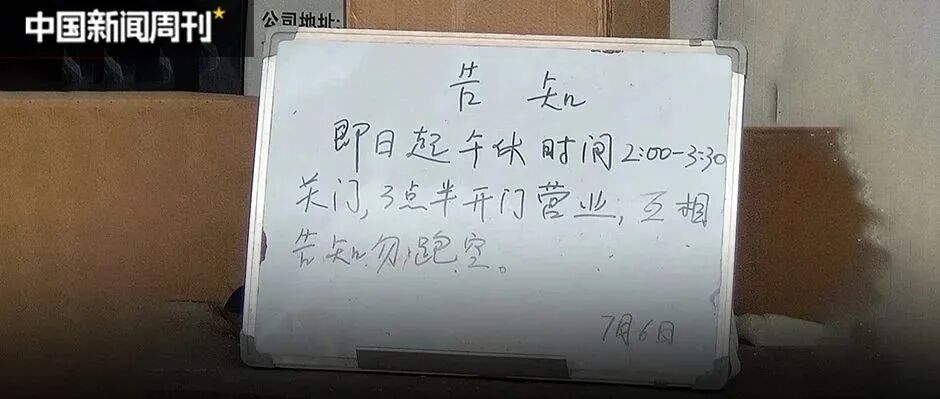 中国新闻周刊
公司地址:
告知
即日起午休时间2:00-3:30
关门,3点半开门营业,互相
告知勿跑空。
7月6日